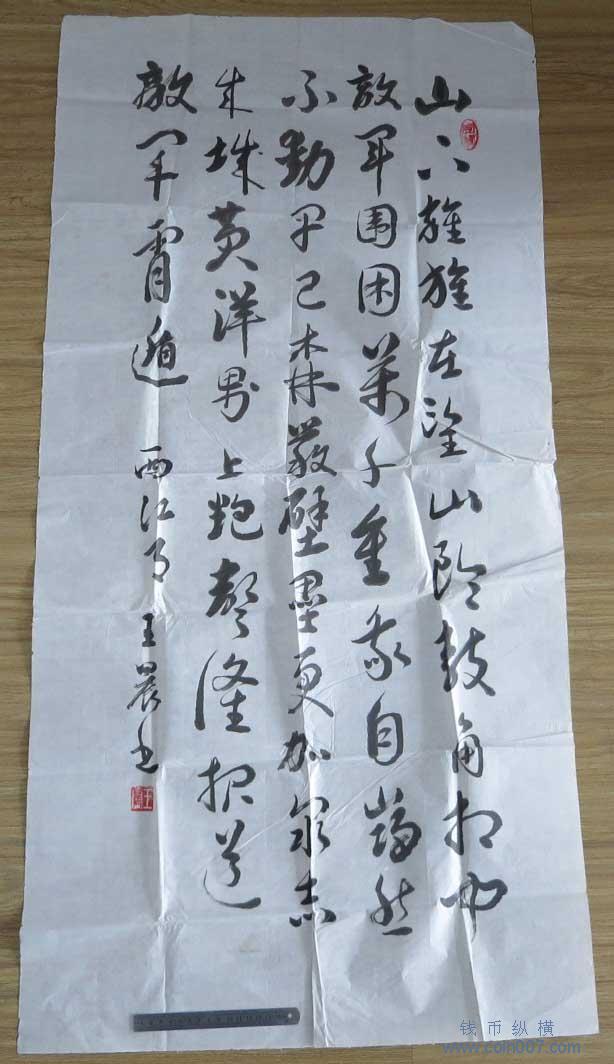 山下旌旗在望山頭鼓角相闻
敌军围困萬千重我自巋然
不動早已森嚴壁壘更加众志
成城黄洋界上炮聲隆报道
敵军宵遁 西江月 王晨书
钱币纵横
www.coin007.com